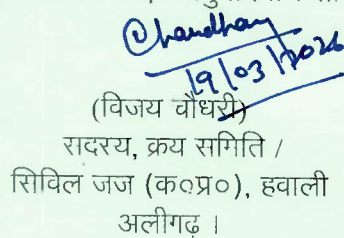 Chaudhary
19/03/2026
(विजय चौधरी)
सदस्य, क्रय समिति /
सिविल जज (क०प्र०), हवाली
अलीगढ़ ।